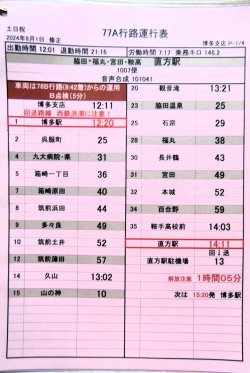 土日祝
2024年8月1日 修正
77A行路運行表
博多支店 P-1/4
出勤時間 12:01 退勤時間 21:16
労働時間 7:17 乗務キロ 145.2
脇田・福丸・宮田・鞍高 直方駅
1007便
音声合成 101041
車両は76B行路(9:42着)からの運用
B点検(5分)
博多支店 12:11
回送路線 西鉄渋滞に注意!
1 博多駅 12:20
2 呉服町 25
4 九大病院・県 31
5 箱崎一丁目 36
7 箱崎原田 40
8 筑前浜田 44
9 多々良 49
10 筑前土井 52
12 筑前蒲田 57
14 久山 13:02
15 山の神 10
20 観音滝 13:21
23 脇田温泉 25
25 石宗 29
28 福丸 38
30 長井鶴 43
31 宮田 49
32 本城 52
34 百合野 59
35 鞍手高校前 14:03
直方駅 14:11
回↓送
直方駅駐機場 13
解放注意 1時間05分
次は 15:20発 博多駅